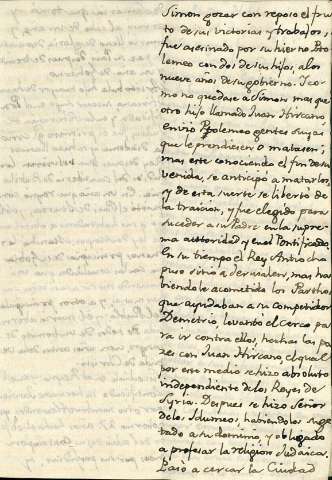 Simon gozar con reposo el fru-
to de sus victorias y trabajos,
fue asesinado por su hierno Pto
lemeo con dos de sus hijos, a los
nueve años de su gobierno. Y co-
mo no quedase a Simon mas que
otro hijo llamado Juan Hircano,
envió Ptolemeo gentes suyas
que le prendiesen o matasen;
mas este conociendo el fin de su
venida, se anticipó a matarlos,
y de esta suerte se libertó de
la traicion, y fue elegido para
suceder a su Padre en la supre-
ma autoridad y en el Pontificado.
En su tiempo el Rey Antiocho
puso sitio a Jerusalen, mas ha-
biendole acometido los Parthos
que ayudaban a su competidor
Demetrio, levantó el cerco pa
ra ir contra ellos, hechas las pa-
zes con Juan Hircano, el qual
por este medio se hizo absoluto
independiente de los Reyes de
Syria. Despues se hizo Señor
de los Idumeos, habiendolos suge-
tado a su dominio, y obligado
a profesar la religion Judaica.
Pasó a cercar la Ciudad